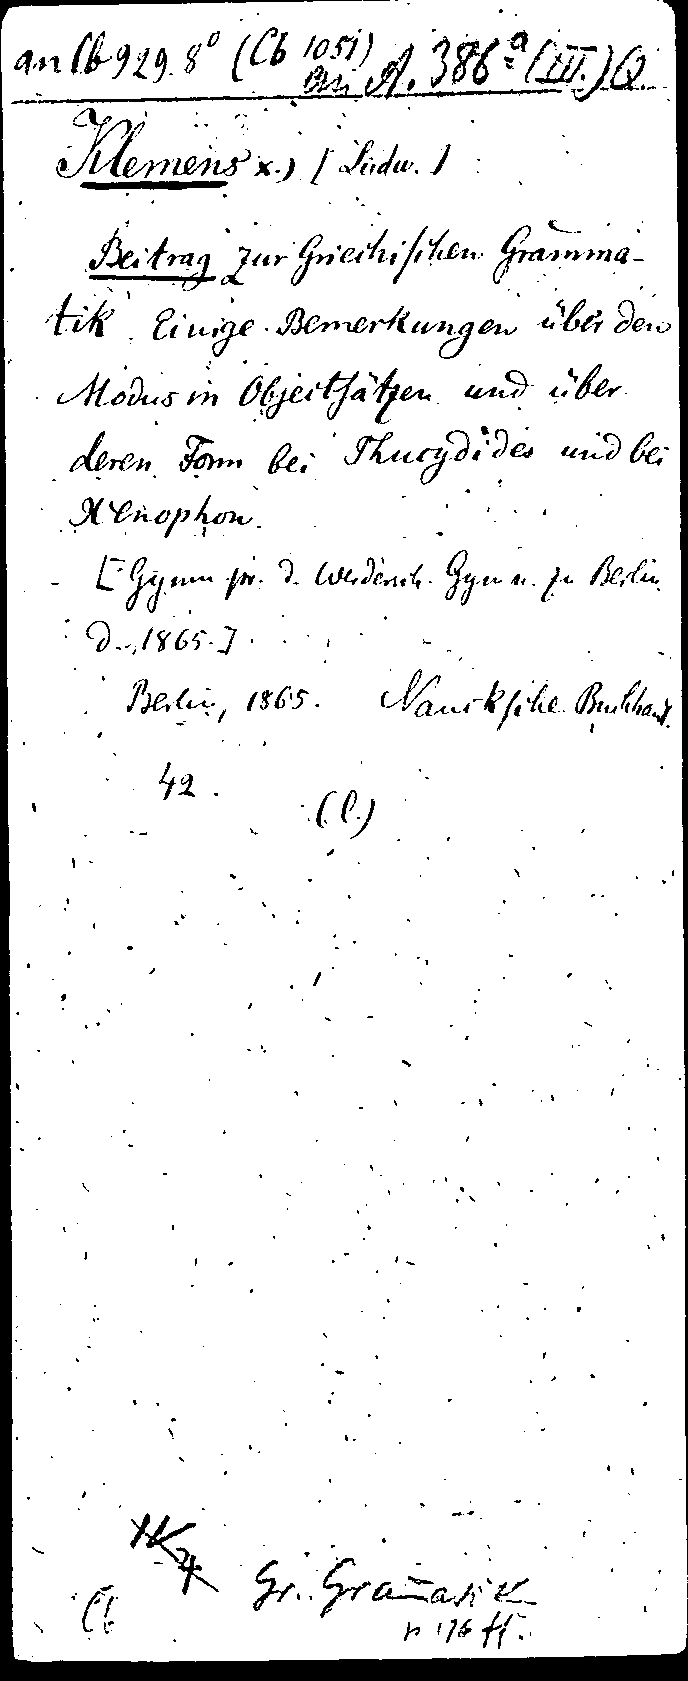 an Cb 929. 8° (Cb 1051)
an A. 386ª (III.) Q.
Klemens x.) [Ludw.]
Beitrag zur Griechischen Gramma-
tik. Einige Bemerkungen über den
Modus in Objectsätzen und über
deren Form bei Thucydides und bei
Xenophon.
[Gymn. pr. d. Werdersch. Gymn. zu Berlin
1865.]
Berlin, 1865. Naucksche Buchhand.
42.
(l.)
Gr. Gram̄atik
Cb
176 ff.